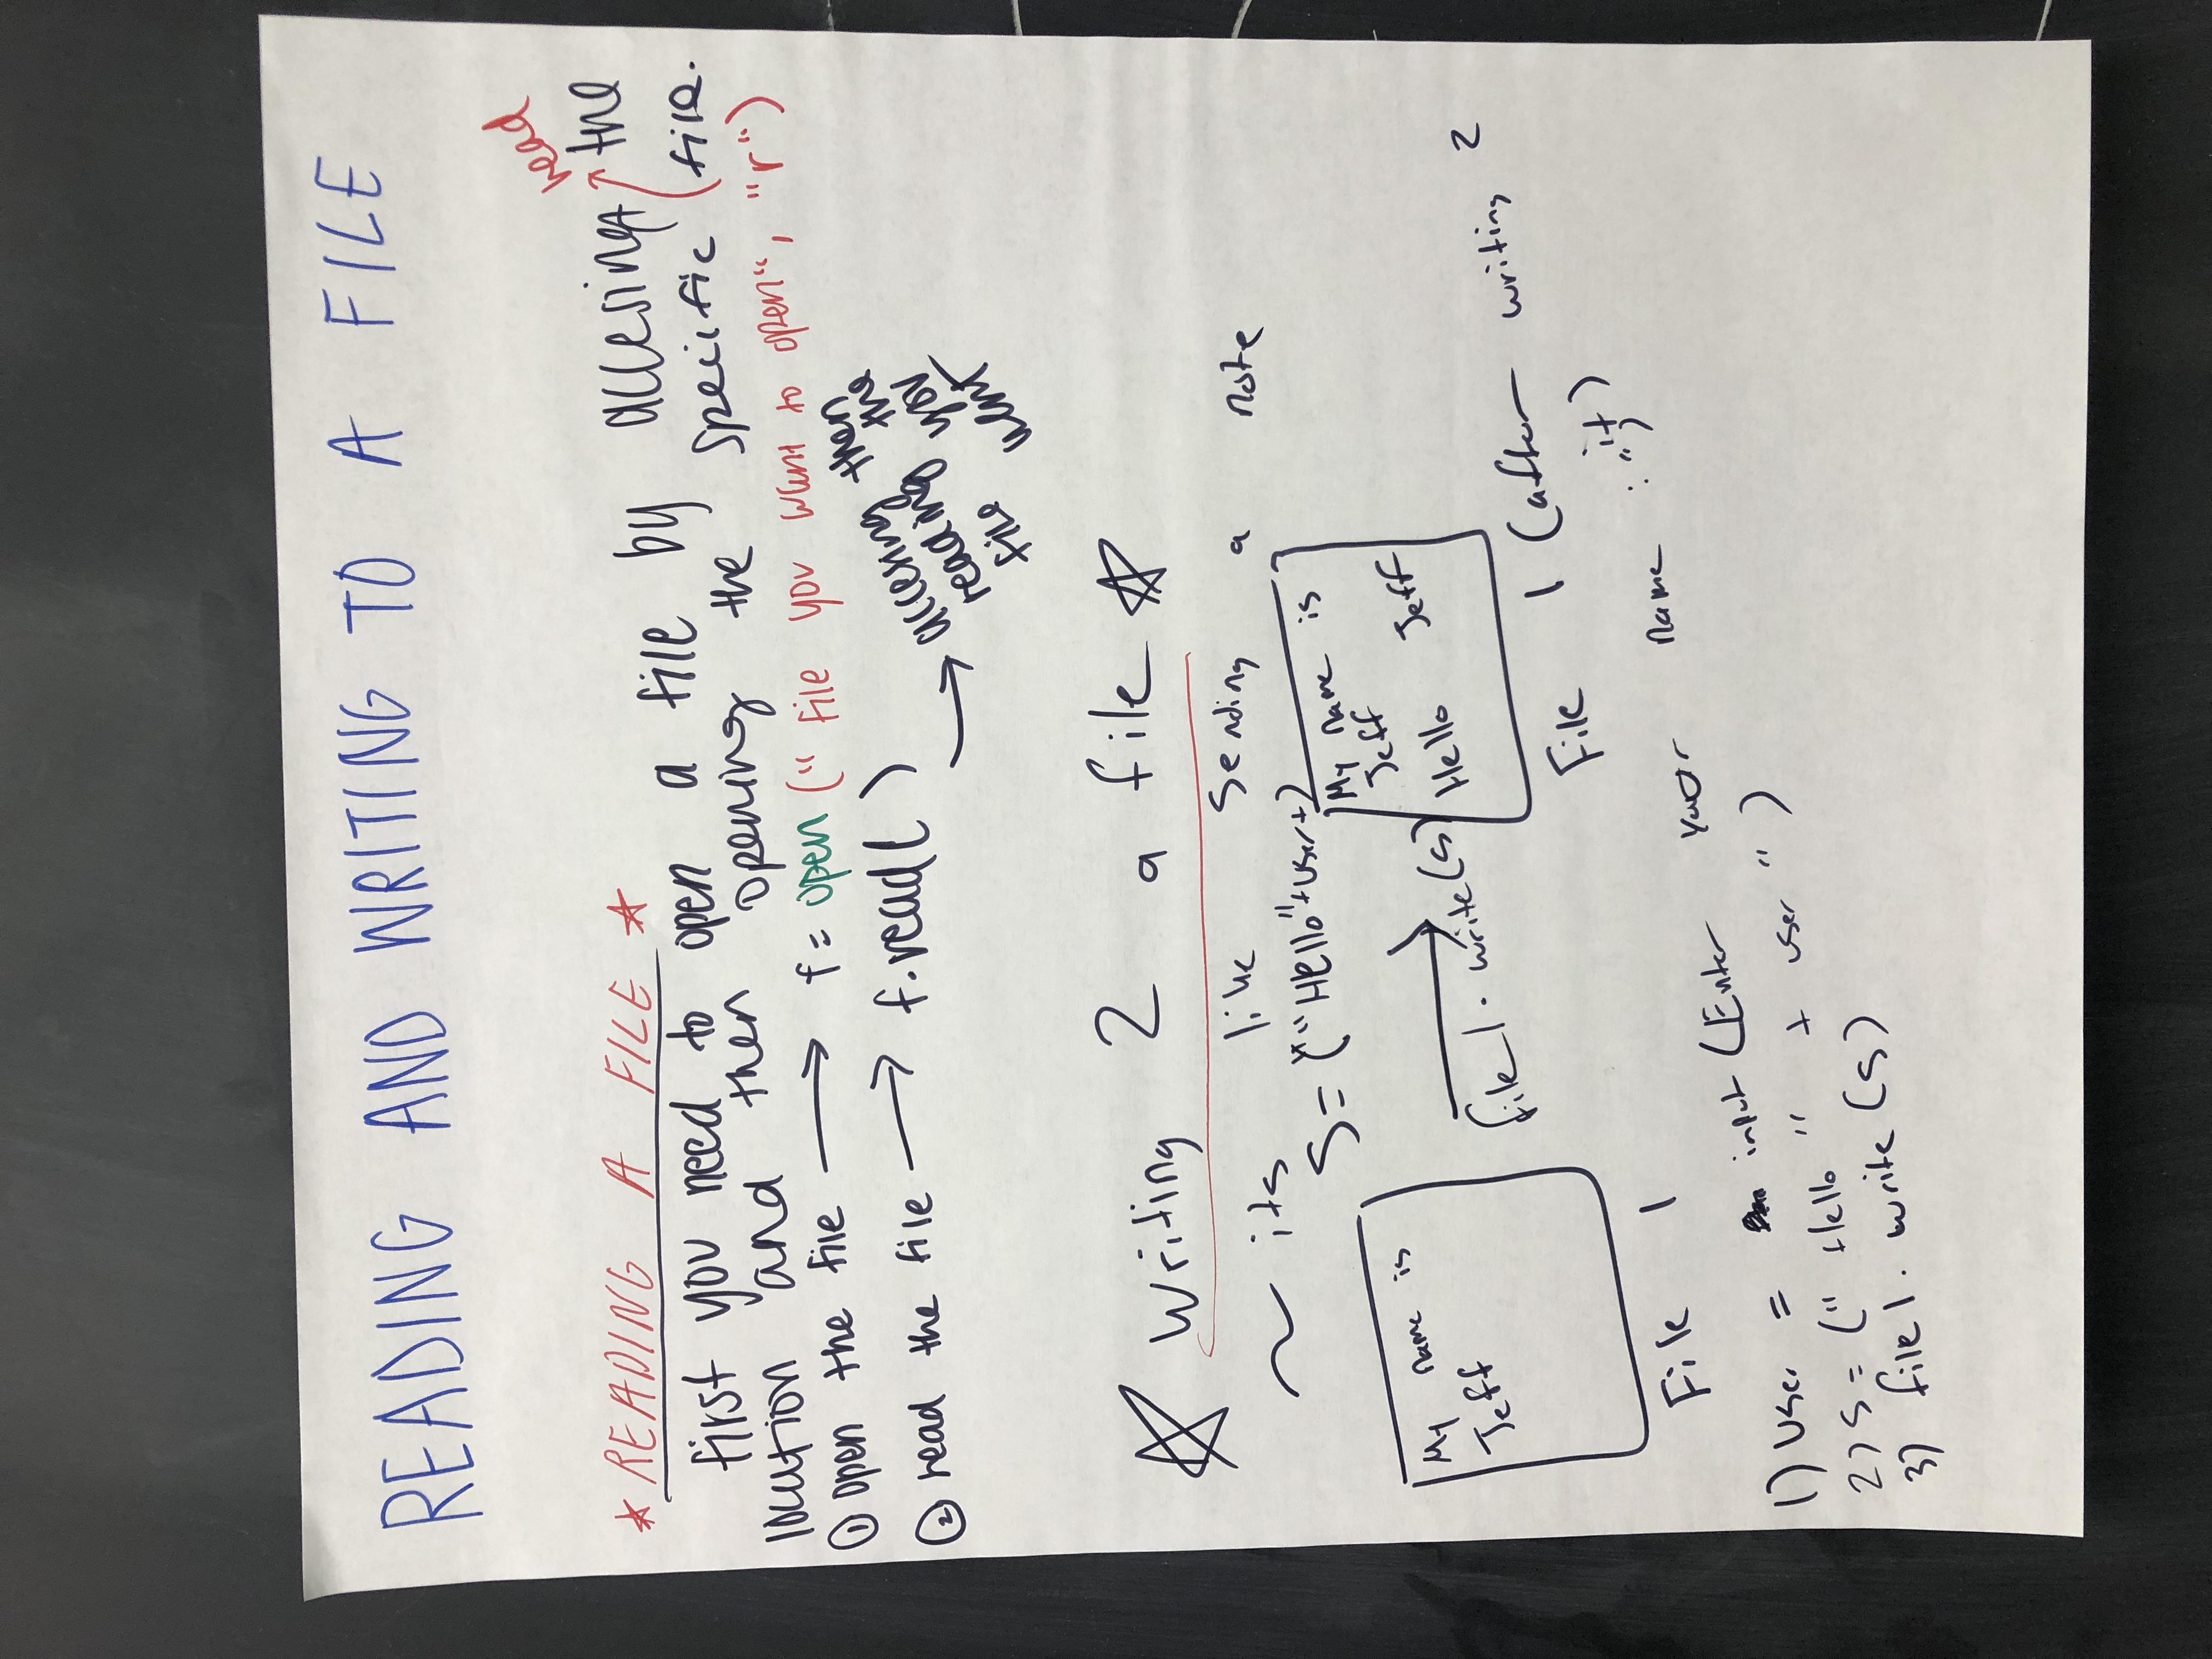 READING AND WRITING TO A FILE
* READING A FILE *
read
First you need to open a file by accesing the
location and then opening the specific file.
① open the file → f = open ("file you want to open", "r")
② read the file → f.read() → accesing then
reading the
file you
want
☆ Writing 2 a file ☆
~ its like sending a note
S = ("Hello"+user+)
My name is
Jeff
File 1
file1.write(s)
My name is
Jeff
Hello Jeff
File 1 (after writing 2
it)
1) user = input (Enter your name : ")
2) S = ("Hello " + user " )
3) file1.write(s)